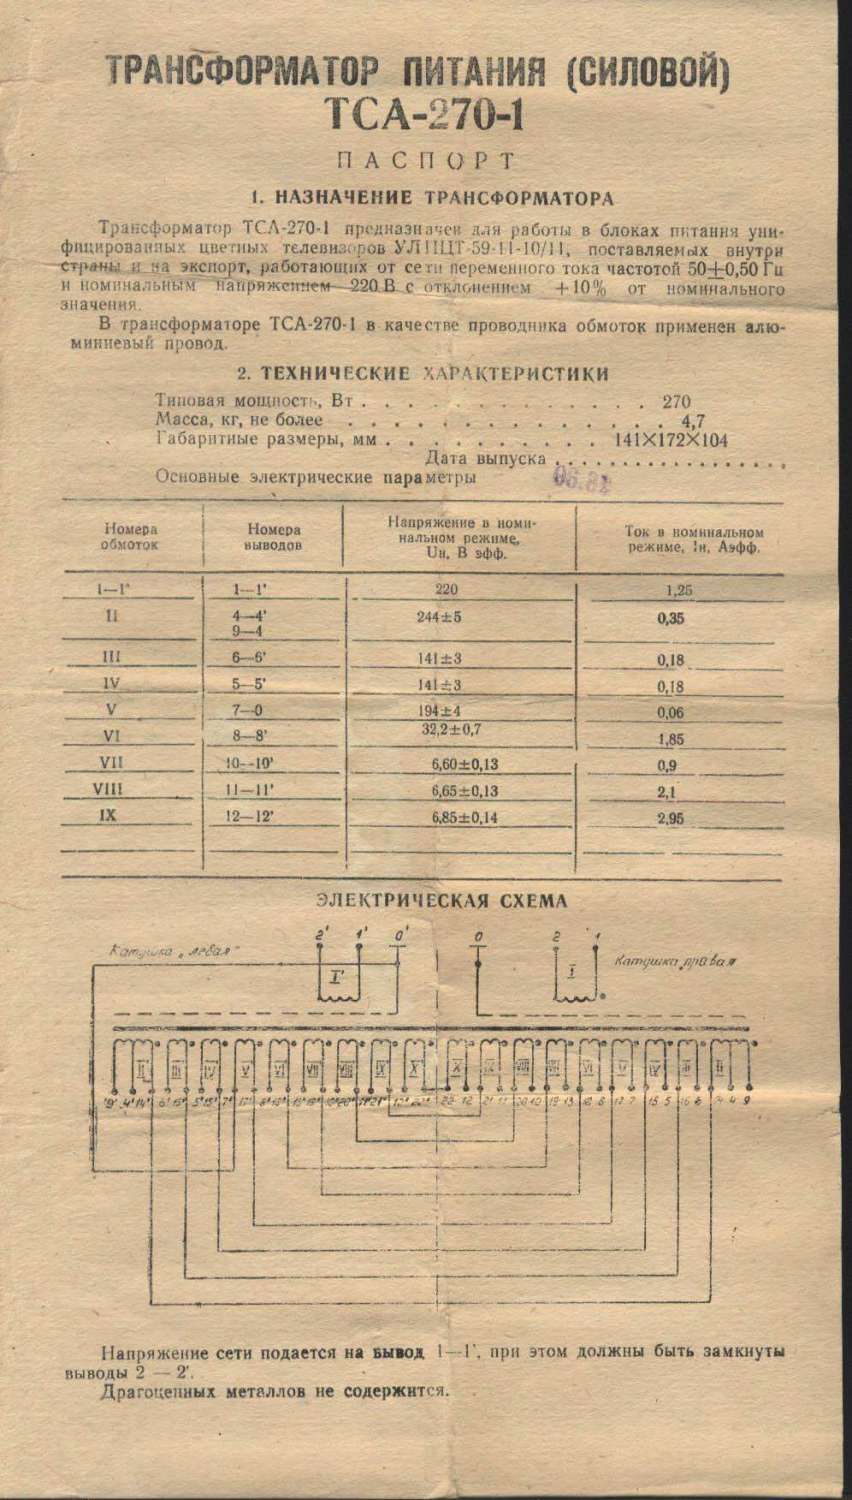 ТРАНСФОРМАТОР ПИТАНИЯ (СИЛОВОЙ)
ТСА-270-1
ПАСПОРТ
1. НАЗНАЧЕНИЕ ТРАНСФОРМАТОРА
Трансформатор ТСА-270-1 предназначен для работы в блоках питания уни-
фицированных цветных телевизоров УЛПЦТ-59-11-10/11, поставляемых внутри
страны и на экспорт, работающих от сети переменного тока частотой 50±0,50 Гц
и номинальным напряжением 220 В с отклонением +10% от номинального
значения.
В трансформаторе ТСА-270-1 в качестве проводника обмоток применен алю-
миниевый провод.
2. ТЕХНИЧЕСКИЕ ХАРАКТЕРИСТИКИ
Типовая мощность, Вт . . . . . . . . . . . . . . 270
Масса, кг, не более . . . . . . . . . . . . . . 4,7
Габаритные размеры, мм . . . . . . . . . . 141X172X104
Дата выпуска . . . . . . . . . . . . . . .
Основные электрические параметры
Номера обмоток | Номера выводов | Напряжение в номи-нальном режиме, Uн, В эфф. | Ток в номинальном режиме, Iн, Аэфф.
I—I' 1—1' 220 1,25
II 4—4' 244±5 0,35
9—4
III 6—6' 141±3 0,18
IV 5—5' 141±3 0,18
V 7—0 194±4 0,06
VI 8—8' 32,2±0,7 1,85
VII 10—10' 6,60±0,13 0,9
VIII 11—11' 6,65±0,13 2,1
IX 12—12' 6,85±0,14 2,95
ЭЛЕКТРИЧЕСКАЯ СХЕМА
2' 1' 0' 0 2 1
Катушка „левая" Катушка правая
I' I
Напряжение сети подается на вывод 1—1', при этом должны быть замкнуты
выводы 2 — 2'.
Драгоценных металлов не содержится.